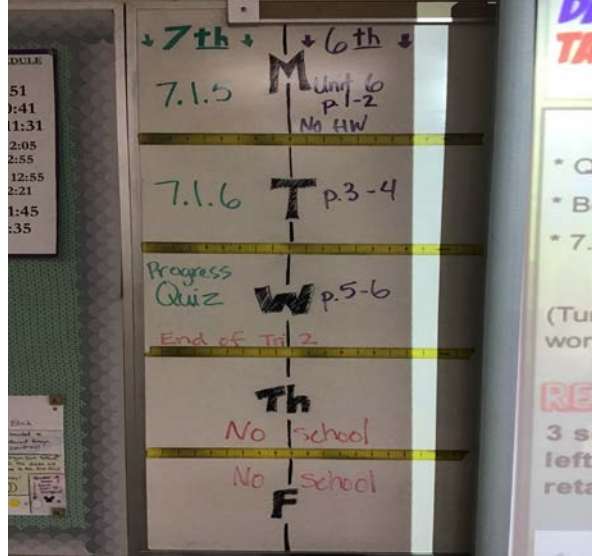 DULE
51
0:41
11:31
12:05
2:55
12:55
2:21
1:45
:35
↓ 7th ↓ ↓ 6th ↓
M
7.1.5
Unit 6
p.1-2
No HW
7.1.6 T p.3-4
Progress
Quiz W p.5-6
End of Tri 2
Th
No school
No school
F
TA
* Q
* B
* 7.
(Tu
wor
RE
3 s
left
reta